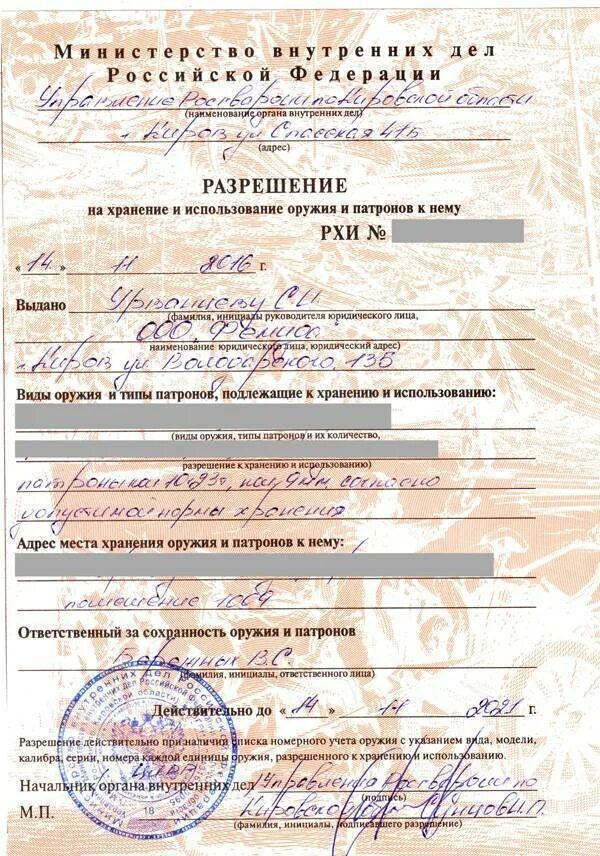 Министерство внутренних дел
Российской Федерации
Управление Росгвардии по Кировской области
(наименование органа внутренних дел)
г. Киров ул Спасская 41Б
(адрес)
РАЗРЕШЕНИЕ
на хранение и использование оружия и патронов к нему
РХИ №
« 14 » 11 2016 г.
Выдано Урванцеву С.И.
(фамилия, инициалы руководителя юридического лица,
ООО Фемида
наименование юридического лица, юридический адрес)
г. Киров ул Володарского, 13Б
Виды оружия и типы патронов, подлежащие к хранению и использованию:
(виды оружия, типы патронов и их количество,
разрешение к хранению и использованию)
патроны кал 10×23т, кал 9мм, согласно
допустимой нормы хранения
Адрес места хранения оружия и патронов к нему:
помещение 1009
Ответственный за сохранность оружия и патронов
В.С.
(фамилия, инициалы, ответственного лица)
Действительно до « 14 » 11 2021 г.
Разрешение действительно при наличии списка номерного учета оружия с указанием вида, модели,
калибра, серии, номера каждой единицы оружия, разрешенного к хранению и использованию.
Начальник органа внутренних дел Управления Росгвардии по
(подпись)
М.П. Кировской
(фамилия, инициалы, подписавшего разрешение)